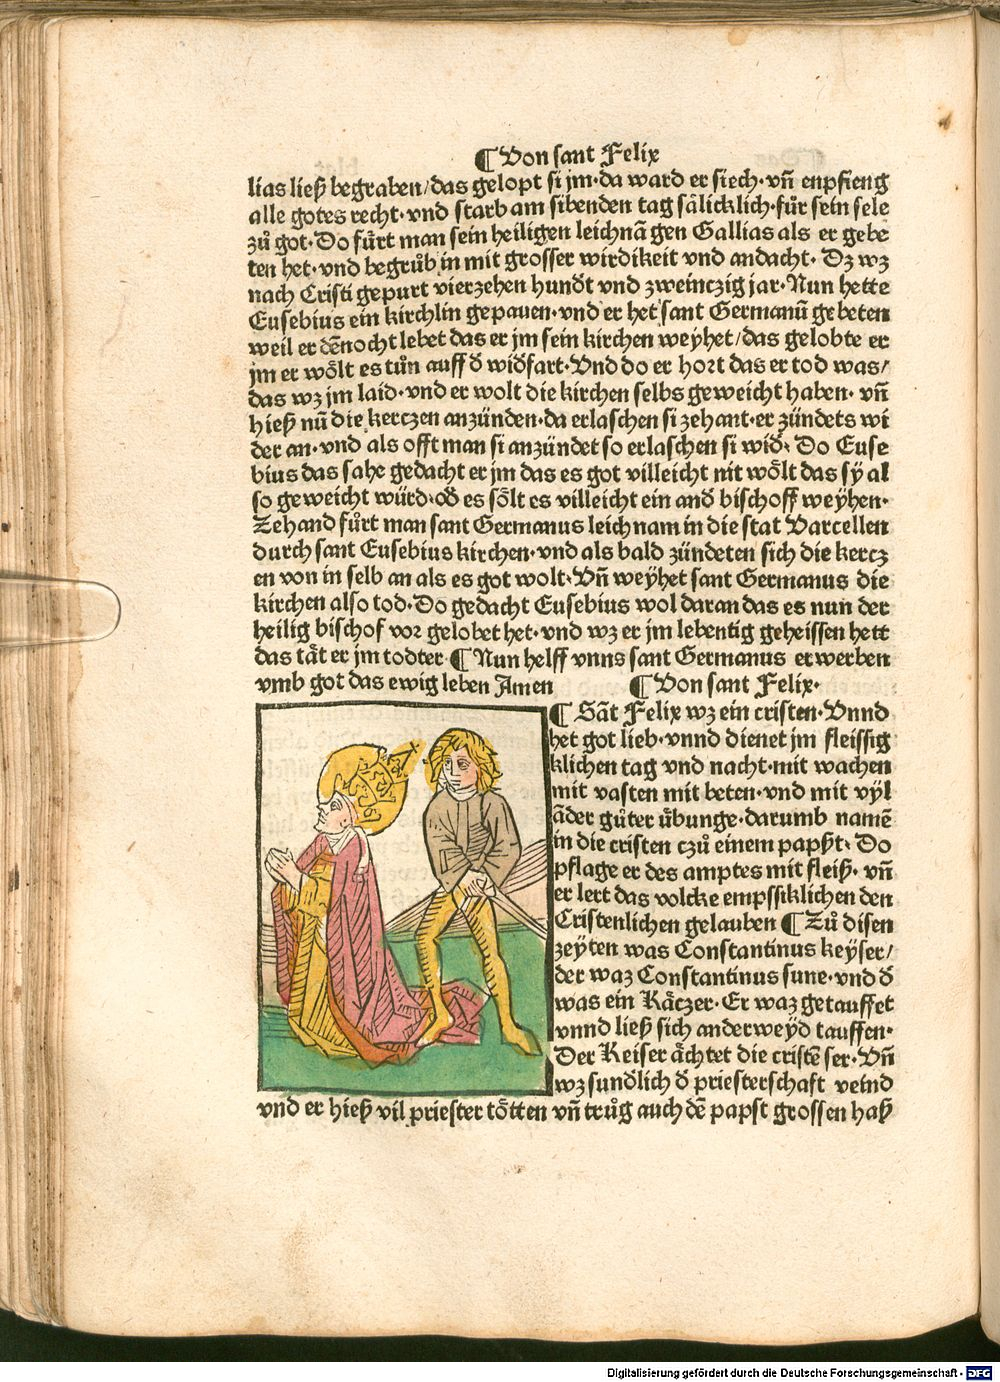 ¶ Von sant Felix
lias ließ begraben/das gelopt si jm·da ward er siech·vñ enpfieng
alle gotes recht·vnd starb am sibenden tag såliklich·für sein sele
zů got·Do fůrt man sein heiligen leichnā gen Gallias als er gebe
ten het·vnd begrůb in mit grosser wirdikeit vnd andacht· Dz wz
nach Cristi gepurt vierzehen hundt vnd zweinczig jar·Nun hette
Eusebius ein kirchlin gepauen·vnd er het sant Germanū gebeten
weil er dēnocht lebet das er jm sein kirchen weyhet/das gelobte er
jm er wölt es tůn auff d̄ widfart·Vnd do er hort das er tod was/
das wz jm laid·vnd er wolt die kirchen selbs geweicht haben· vñ
hieß nū die kerczen anzünden·da erlaschen si zehant·er zündets wi
der an·vnd als offt man si anzündet so erlaschen si wid̄· Do Euse
bius das sahe gedacht er jm das es got villeicht nit wölt das sÿ al
so geweicht würd·od̄ es sölt es villeicht ein and̄ bischoff weyhen·
Zehand fůrt man sant Germanus leichnam in die stat Varcellen
durch sant Eusebius kirchen·vnd als bald zündeten sich die kercz
en von in selb an als es got wolt·Vñ weÿhet sant Germanus die
kirchen also tod·Do gedacht Eusebius wol daran das es nun der
heilig bischof vor gelobet het·vnd wz er jm lebentig geheissen hett
das tåt er jm todter ¶ Nun helff vnns sant Germanus erwerben
vmb got das ewig leben Amen ¶ Von sant Felix·
¶ Sāt Felix wz ein cristen·Vnnd
het got lieb·vnnd dienet jm fleissig
klichen tag vnd nacht·mit wachen
mit vasten mit beten·vnd mit vÿl
āder gůter übunge·darumb namē
in die cristen czů einem papst· Do
pflage er des amptes mit fleiß· vñ
er lert das volcke empssiklichen den
Cristenlichen gelauben ¶ Zů disen
zeÿten was Constantinus keÿser/
der waz Constantinus sune·vnd d̄
was ein Kåczer·Er waz getauffet
vnnd ließ sich anderweÿd tauffen·
Der Keiser åchtet die cristē ser·Vñ
wz sundlich d̄ priesterschaft veind
vnd er hieß vil priester tötten vñ trůg auch dē papst grossen haß
Digitalisierung gefördert durch die Deutsche Forschungsgemeinschaft - DFG